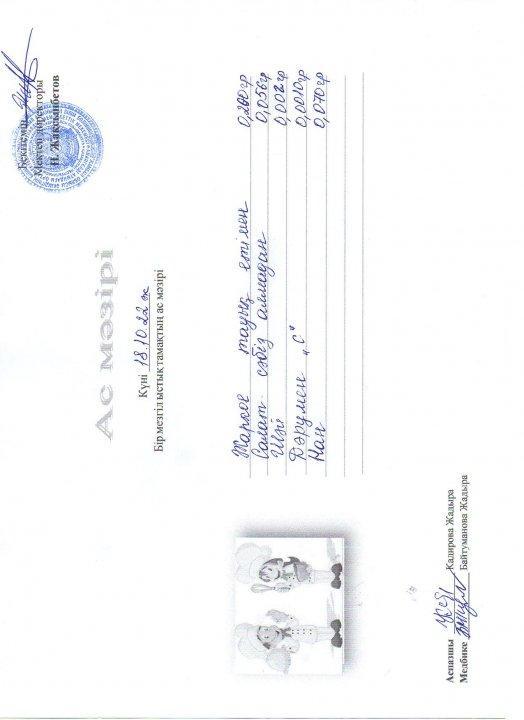 Бекітемін
Мектеп директоры
Н. Жақсымбетов
Ас мәзірі
Күні 18.10.22 ж
Бір мезгіл ыстық тамақтың ас мәзірі
Жаркое тауық етімен 0,200гр
Салат сәбіз алмадан 0,056гр
Шәй 0,002гр
Дәрумен „С" 0,0010гр
Нан 0,070гр
Аспазшы Кадирова Жадыра
Медбике Байтуманова Жадыра